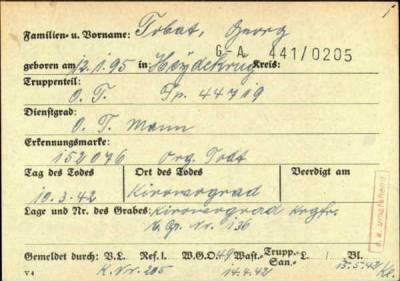 Familien- u. Vorname: Tobat, Georg
G.A. 441/0205
geboren am 12.1.95 in: Heydekrug Kreis:
Truppenteil:
O. T. Fp. 44719
Dienstgrad:
O. T. Mann
Erkennungsmarke:
152076 Org. Todt
Tag des Todes Ort des Todes Beerdigt am
10.3.42 Kirowograd
Lage und Nr. des Grabes: Kirowograd
Gr. Nr. 136
Gemeldet durch: V.L. Ref. I. W.G.O. 49 Wast.- Trupp.- San.- L. / Bl.
V 4 K. Nr. 205 14.4.42 15.5.42